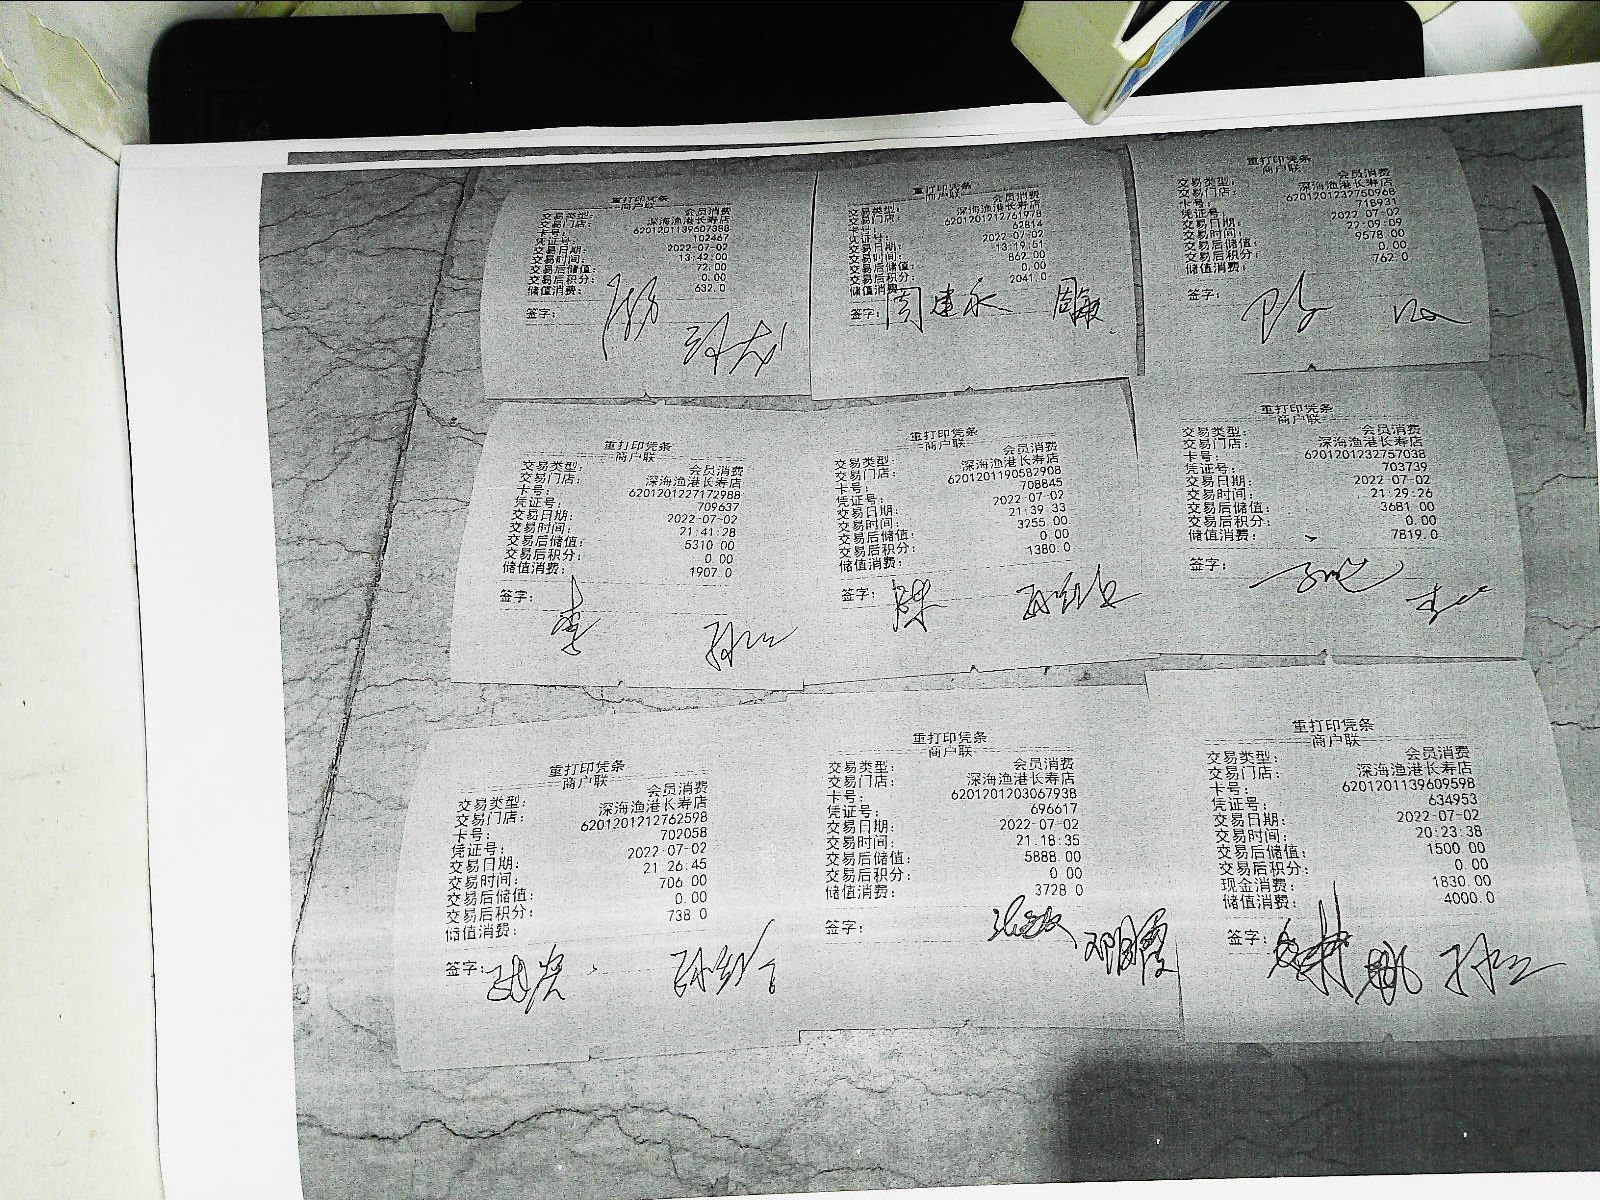 重打印凭条
商户联
交易类型： 会员消费
交易门店： 深海渔港长寿店
卡号： 6201201139607388
凭证号： 102467
交易日期： 2022-07-02
交易时间： 13:42:00
交易后储值： 72.00
交易后积分： 0.00
储值消费： 632.0
签字：
重打印凭条
商户联
交易类型： 会员消费
交易门店： 深海渔港长寿店
卡号： 6201201212761978
凭证号： 62814
交易日期： 2022-07-02
交易时间： 13:19:51
交易后储值： 862.00
交易后积分： 0.00
储值消费： 2041.0
签字： 周建永 周敏
重打印凭条
商户联
交易类型： 会员消费
交易门店： 深海渔港长寿店
卡号： 6201201232750968
凭证号： 718931
交易日期： 2022-07-02
交易时间： 22:09:09
交易后储值： 9578.00
交易后积分： 0.00
储值消费： 762.0
签字：
重打印凭条
商户联
交易类型： 会员消费
交易门店： 深海渔港长寿店
卡号： 6201201227172988
凭证号： 709637
交易日期： 2022-07-02
交易时间： 21:41:28
交易后储值： 5310.00
交易后积分： 0.00
储值消费： 1907.0
签字： 李
重打印凭条
商户联
交易类型： 会员消费
交易门店： 深海渔港长寿店
卡号： 6201201190582908
凭证号： 708845
交易日期： 2022-07-02
交易时间： 21:39:33
交易后储值： 3255.00
交易后积分： 0.00
储值消费： 1380.0
签字： 陈
重打印凭条
商户联
交易类型： 会员消费
交易门店： 深海渔港长寿店
卡号： 6201201232757038
凭证号： 703739
交易日期： 2022-07-02
交易时间： 21:29:26
交易后储值： 3681.00
交易后积分： 0.00
储值消费： 7819.0
签字：
重打印凭条
商户联
交易类型： 会员消费
交易门店： 深海渔港长寿店
卡号： 6201201212762598
凭证号： 702058
交易日期： 2022-07-02
交易时间： 21:26:45
交易后储值： 706.00
交易后积分： 0.00
储值消费： 738.0
签字：
重打印凭条
商户联
交易类型： 会员消费
交易门店： 深海渔港长寿店
卡号： 6201201203067938
凭证号： 696617
交易日期： 2022-07-02
交易时间： 21:18:35
交易后储值： 5888.00
交易后积分： 0.00
储值消费： 3728.0
签字：
重打印凭条
商户联
交易类型： 会员消费
交易门店： 深海渔港长寿店
卡号： 6201201139609598
凭证号： 634953
交易日期： 2022-07-02
交易时间： 20:23:38
交易后储值： 1500.00
交易后积分： 0.00
现金消费： 1830.00
储值消费： 4000.0
签字：